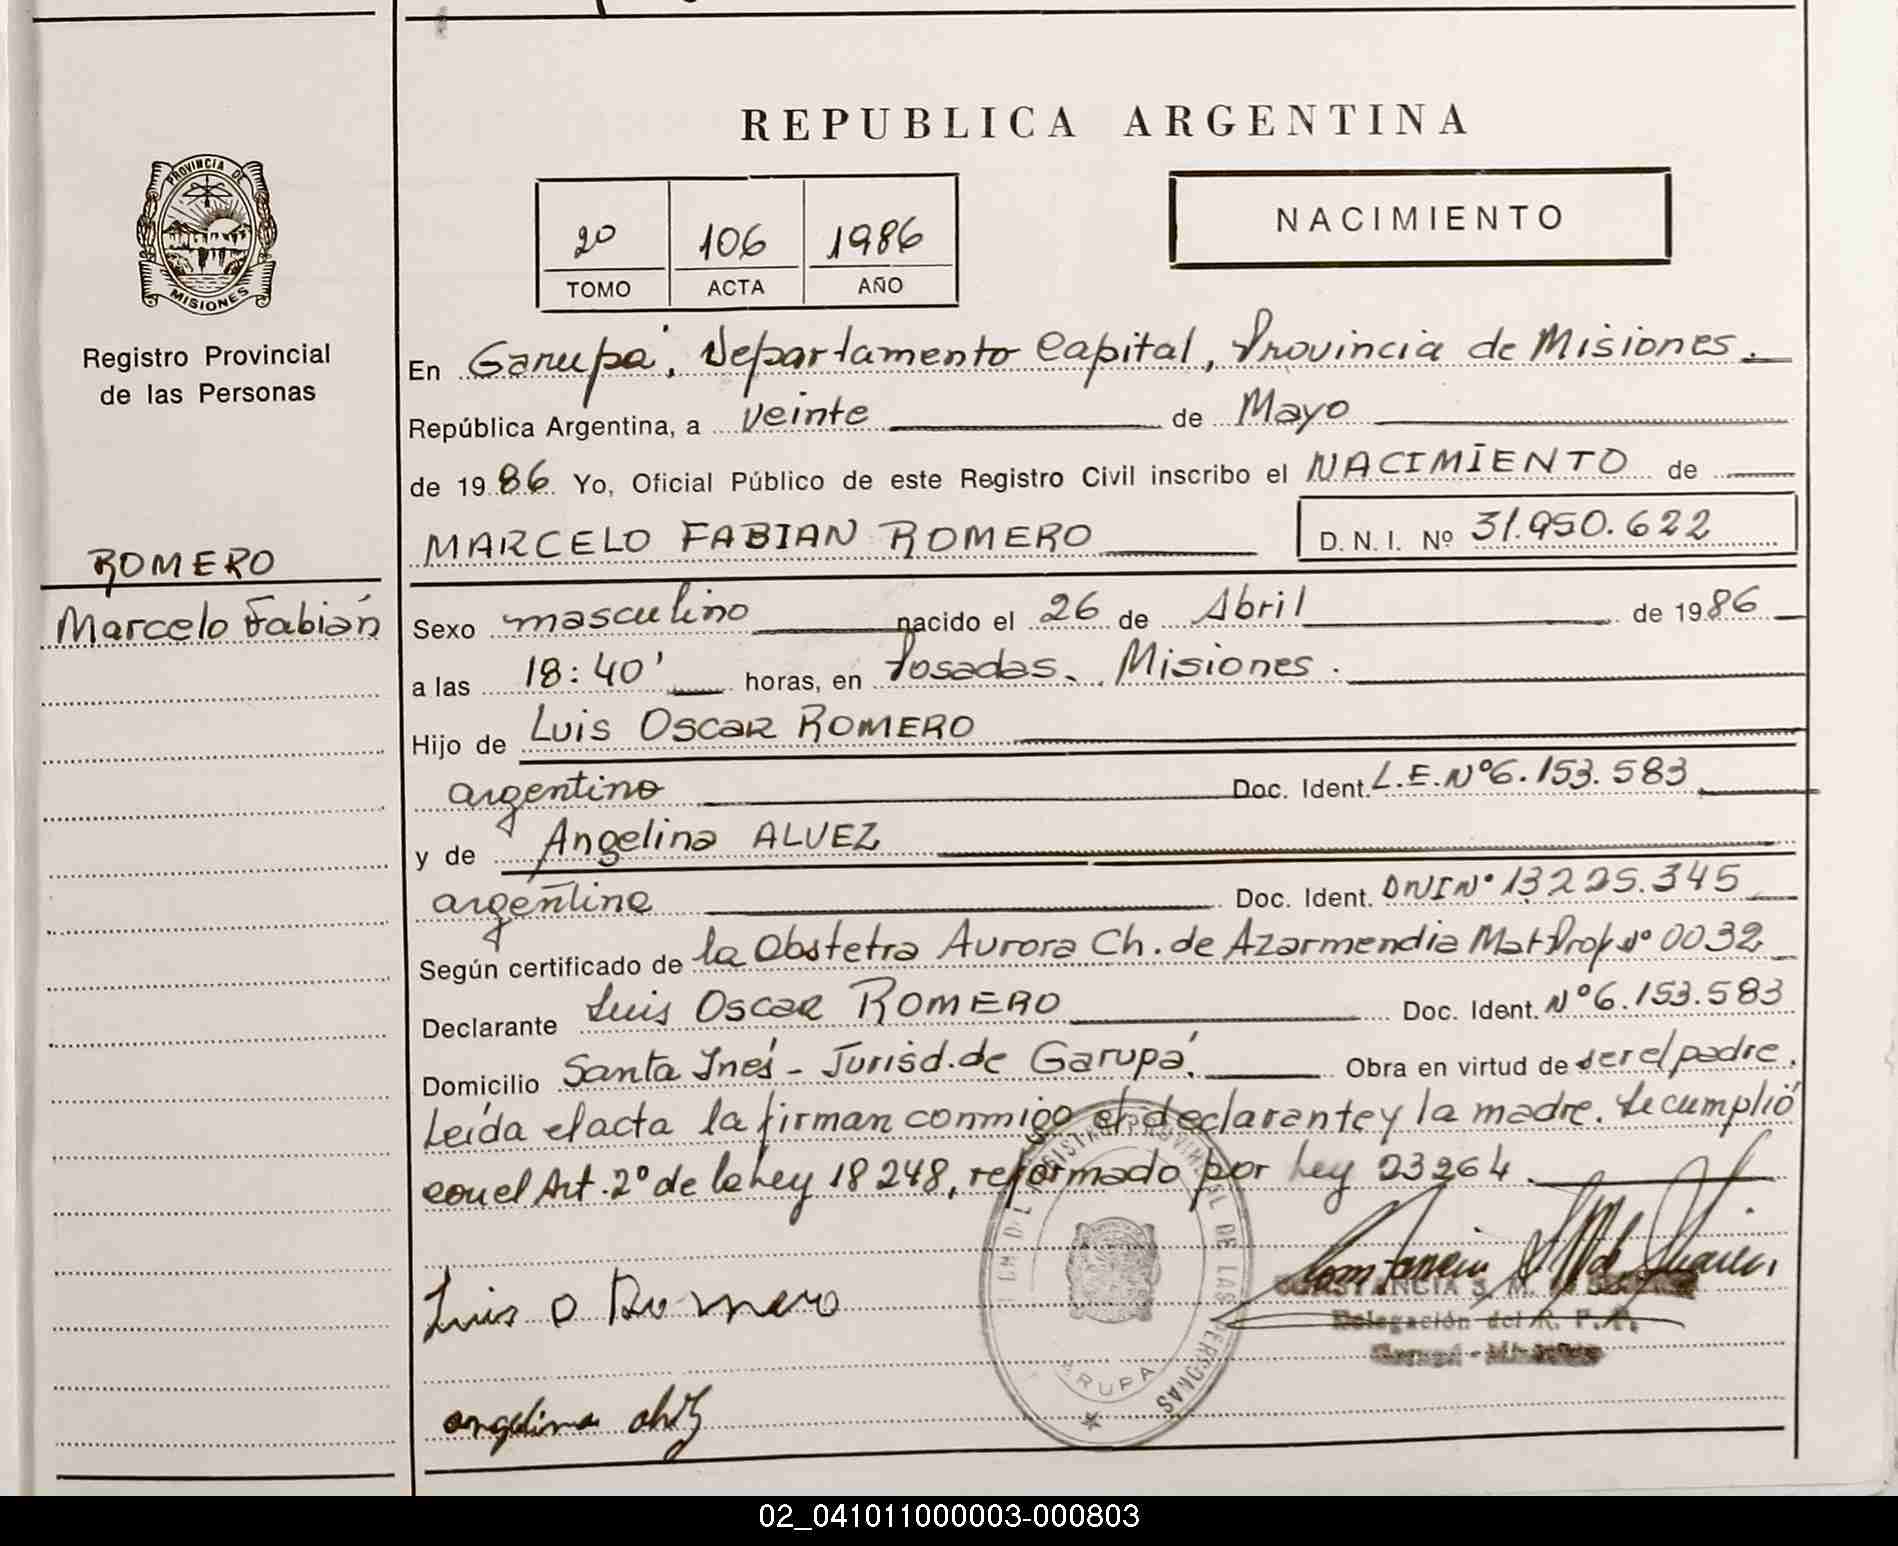 REPUBLICA ARGENTINA
PROVINCIA DE
MISIONES
Registro Provincial
de las Personas
20 106 1986
TOMO ACTA AÑO
NACIMIENTO
En Garupá, Departamento Capital, Provincia de Misiones.
República Argentina, a veinte de Mayo
de 1986 Yo, Oficial Público de este Registro Civil inscribo el NACIMIENTO de
MARCELO FABIAN ROMERO D.N.I. Nº 31.950.622
ROMERO
Marcelo Fabián
Sexo masculino nacido el 26 de Abril de 1986
a las 18:40' horas, en Posadas, Misiones.
Hijo de Luis Oscar ROMERO
argentino Doc. Ident. L.E.Nº6.153.583
y de Angelina ALVEZ
argentina Doc. Ident. DNI Nº 13225.345
Según certificado de la Obstetra Aurora Ch. de Azarmendia Mat Prof Nº 0032
Declarante Luis Oscar ROMERO Doc. Ident. Nº6.153.583
Domicilio Santa Inés - Jurisd. de Garupá. Obra en virtud de ser el padre.
Leída el acta la firman conmigo el declarante y la madre. Se cumplió
con el Art. 2º de la Ley 18248, reformado por Ley 23264.
Luis O Romero
CONSTANCIA S. M.
Delegación del R. P. P.
Garupá - Misiones
REGISTRO PROVINCIAL DE LAS PERSONAS
GARUPA
angelina
02_041011000003-000803